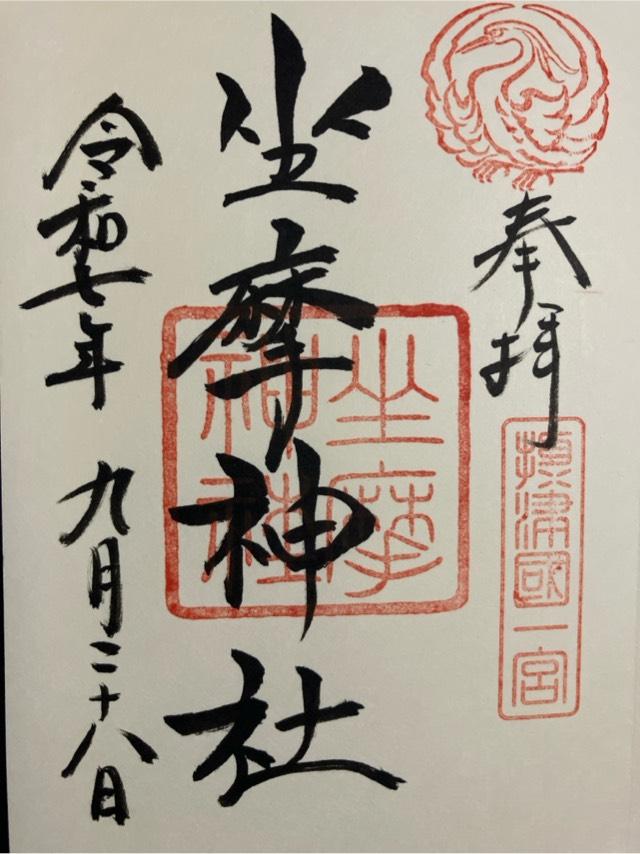 奉拝
摂津國一宮
坐摩神社
坐摩
神社
令和七年 九月二十八日